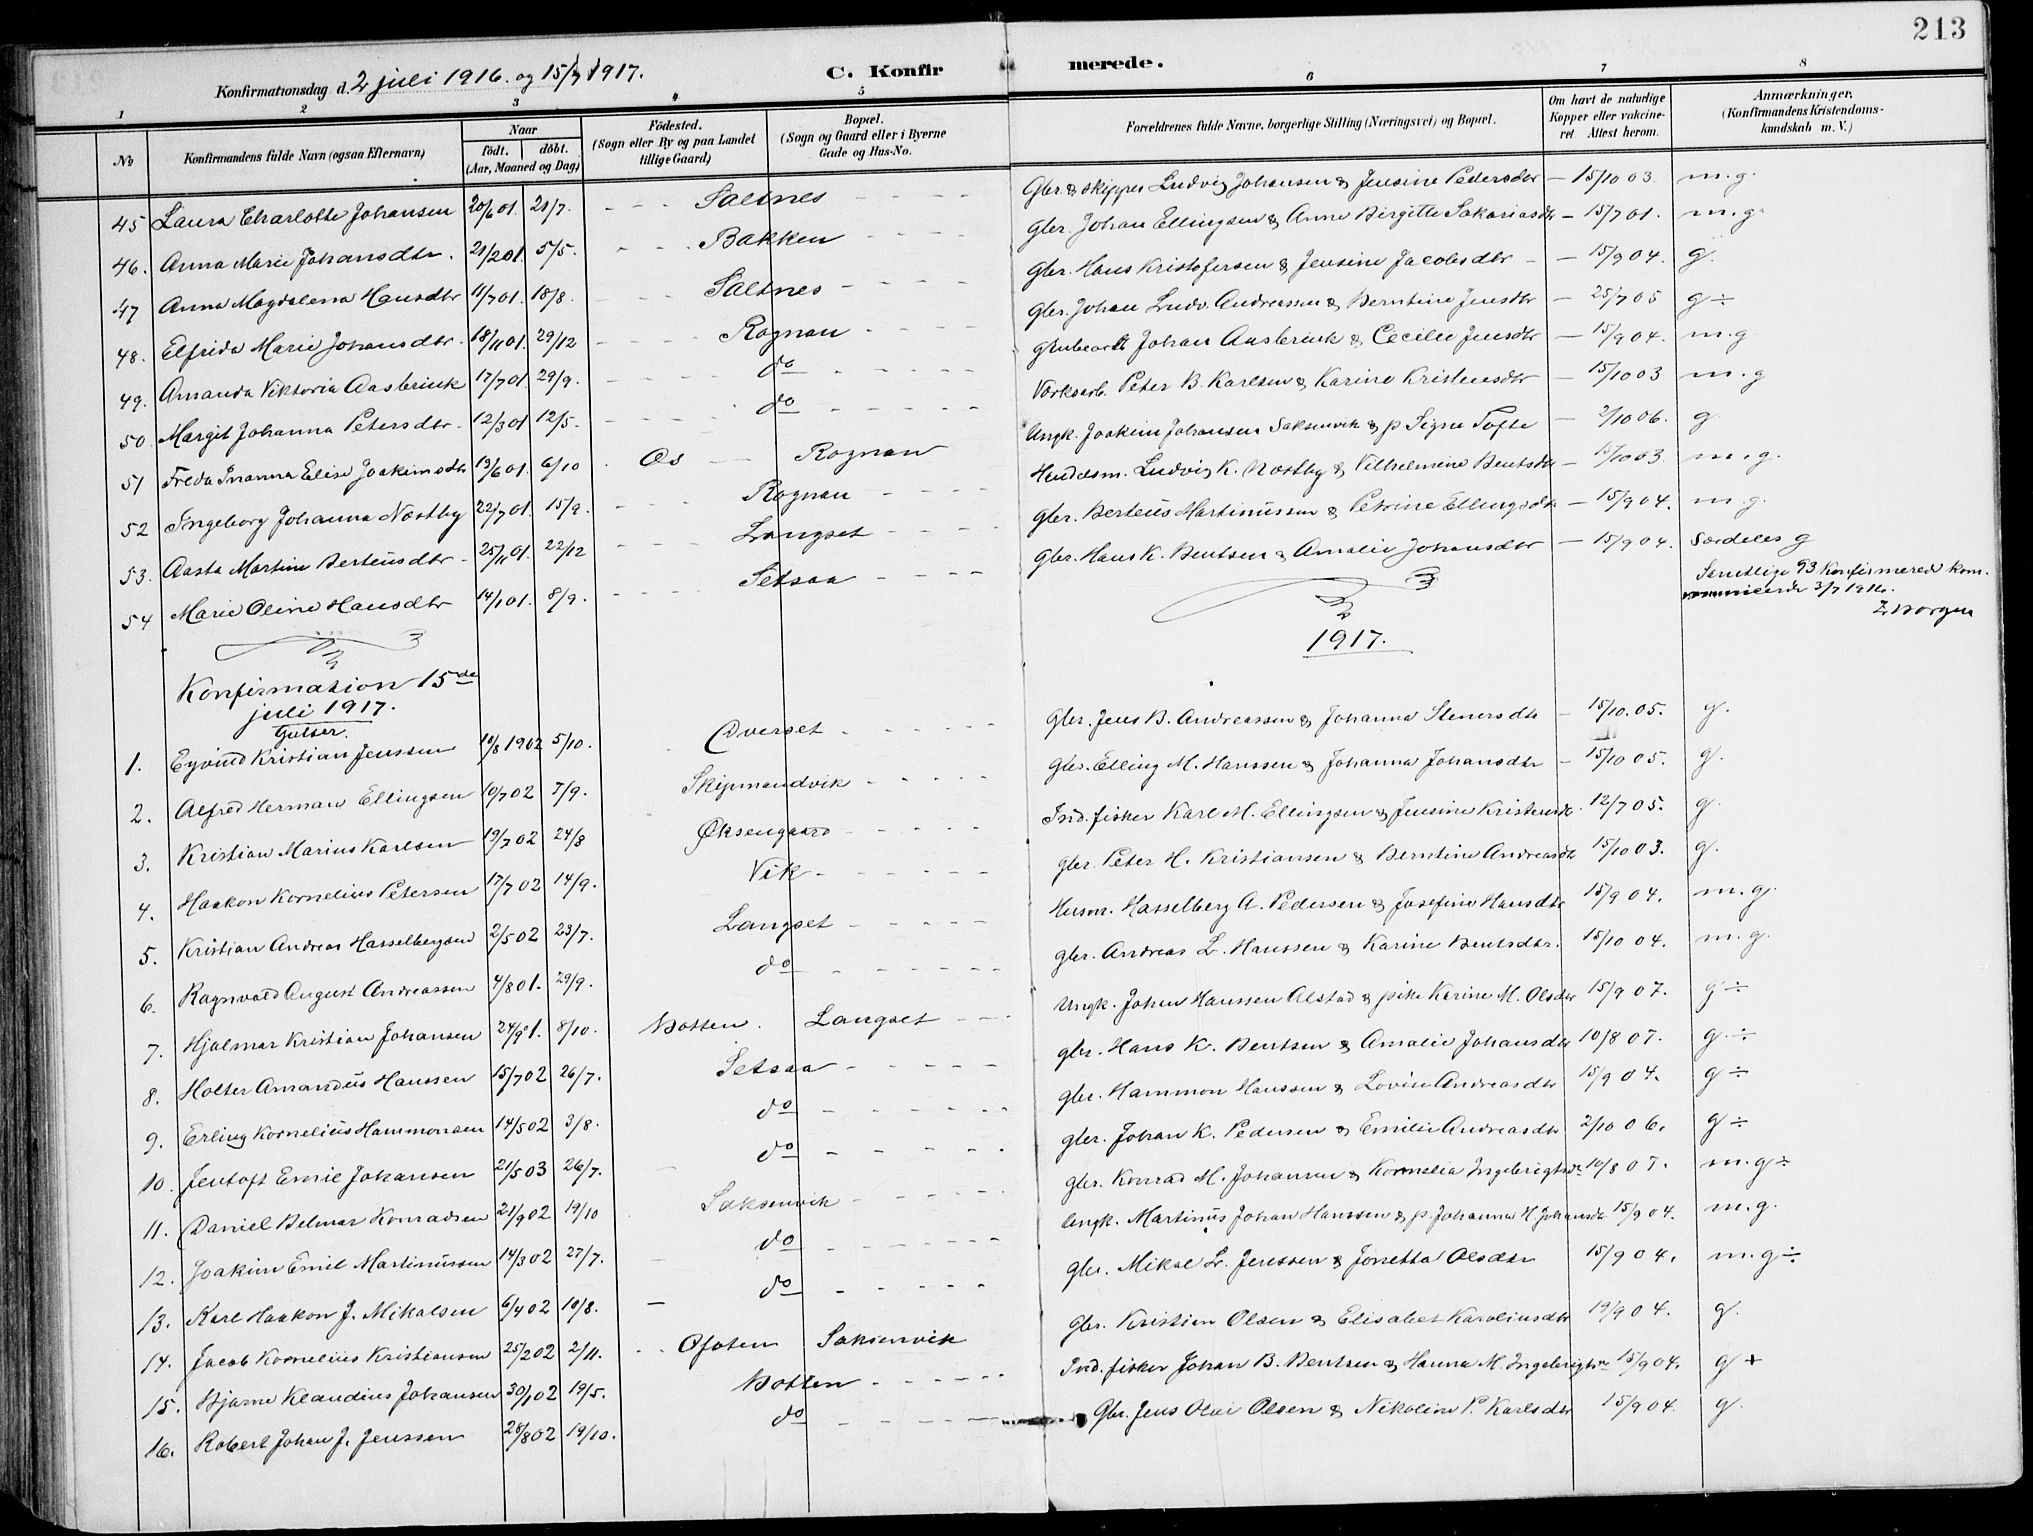 213
Konfirmationsdag d. 2 juli 1916. og 15/7 1917. C. Konfirmerede.
1 2 3 4 5 6 7 8
No Konfirmandens fulde Navn (ogsaa Efternavn) Naar født. døbt. (Aar, Maaned og Dag) Fødested. (Sogn eller By og paa Landet tillige Gaard) Bopæl. (Sogn og Gaard eller i Byerne Gade og Hus-No. Forældrenes fulde Navne, borgerlige Stilling (Næringsvei) og Bopæl. Om havt de naturlige Kopper eller vakcineret Attest herom. Anmærkninger. (Konfirmandens Kristendomskundskab m. V.)
45 Laura Charlotte Johansen 20/6 01. 21/7. Saltnes Gbr. & skipper Ludvig Johansen & Jensine Pedersdtr 15/10 03. m.g.
46. Anna Marie Johansdtr. 21/2 01. 5/5. Bakken Gbr. Johan Ellingsen & Anne Birgitte Sakariasdtr 15/7 01. m.g.
47 Anna Magdalena Hansdtr 11/7 01. 18/8. Saltnes Gbr. Hans Kristofersen & Jensine Jacobsdtr 15/9 04. g.
48. Elfrida Marie Johansdtr. 18/11 01. 29/12 Rognan Gbr. Johan Ludv. Andreassen & Berntine Jensdtr 25/7 05 g ÷
49. Amanda Viktoria Aasbrink 17/7 01. 29/9. do Grubearb Johan Aasbrink & Cecilie Jensdtr 15/9 04. m.g
50. Margit Johanna Petersdtr. 12/3 01 12/5. do Værksarb. Peter B. Karlsen & Karine Kristensdtr 15/10 03 m.g
51 Freda Inanna Elise Joakimsdtr 19/6 01. 6/10 Os Rognan Ungk. Joakim Johansen Saksenvik & p. Signe Tofte 2/10 06. g.
52 Ingeborg Johanna Næstby 22/7 01. 15/9. Rognan Handelsm. Ludvig K. Næstby & Vilhelmine Bentsdtr 15/10 03. m.g.
53. Aasta Martine Berteusdtr. 25/11 01. 22/12 Langset Gbr. Berteus Martinussen & Petrine Ellingsdtr 15/9 04. m.g.
54 Marie Oline Hansdtr 14/1 01. 8/9. Setsaa Gbr. Hans K. Bentsen & Amalie Johansdtr 15/9 04. Særdeles g
Samtlige 93 Konfirmerede kommunicerede 3/7 1916.
1917.
Konfirmation 15de
juli 1917.
Gutter.
1. Eyvind Kristian Jenssen 10/8 1902 5/10. Øverset Gbr. Jens B. Andreassen & Johanna Stenersdtr 15/10. 05. g.
2. Alfred Herman Ellingsen 10/7 02 7/9. Skipmandvik Gbr. Elling M. Hanssen & Johanna Johansdtr 15/10 05. g.
3. Kristian Marius Karlsen 19/7 02 24/8 Øksengaard Ind. fisker Karl M. Ellingsen & Jensine Kristensdtr. 12/7 05. g
4. Haakon Kornelius Petersen 17/7 02 14/9. Vik Gbr. Peter H. Kristiansen & Berntine Andreasdtr 15/10 03. g.
5. Kristian Andreas Hasselbergsen 2/5 02 23/7. Langset Husm. Hasselberg A. Pedersen & Josefine Hansdtr 15/9 04. m.g.
6. Ragnvald August Andreassen 4/8 01. 29/9. do Gbr. Andreas L. Hanssen & Karine Bentsdtr. 15/10 04. m.g.
7. Hjalmar Kristian Johansen 24/9 01. 8/10. Botten. Langset Ungk. Johan Hanssen Alstad & pike Karine M. Olsdtr 15/9 07. g ÷
8. Holter Amandus Hanssen 15/7 02 26/7. Setsaa Gbr. Hans K. Bentsen & Amalie Johansdtr 10/8 07. g. ÷
9. Erling Kornelius Hammonsen 14/5 02 3/8. do Gbr. Hammon Hanssen & Lovise Andreasdtr 15/9 04. g ÷
10. Jentoft Emil Johansen 21/5 03 26/7. do Gbr. Johan K. Pedersen & Emilie Andreasdtr 2/10 06. g ÷
11. Daniel Delmar Konradsen 21/9 02 19/10 Saksenvik Gbr. Konrad M. Johansen & Kornelia Ingebrigtsdtr 10/8 07. m.g ÷
12. Joakim Emil Martinussen 14/3 02 27/7. do Ungk. Martinus Johan Hanssen & p. Johanna H. Johansdtr 15/9 04. m.g.
13. Karl Haakon J. Mikalsen 6/4 02 10/8. do Gbr. Mikal L. Jenssen & Jonetta Olsdtr 15/9 04. m.g ÷
14. Jacob Kornelius Kristiansen 25/2 02 2/11. Ofoten Saksenvik Gbr. Kristian Olsen & Elisabet Karoliusdtr 19/9 04. g.
15. Bjarne Klaudius Johansen 30/1 02 19/5. Botten Ind. fisker Johan B. Bentsen & Hanna M. Ingebrigtsdtr 15/9 04. g +
16. Robert Johan J. Jenssen 28/8 02 19/10. do Gbr. Jens Olai Olsen & Nikoline P. Karlsdtr 15/9 04. g.